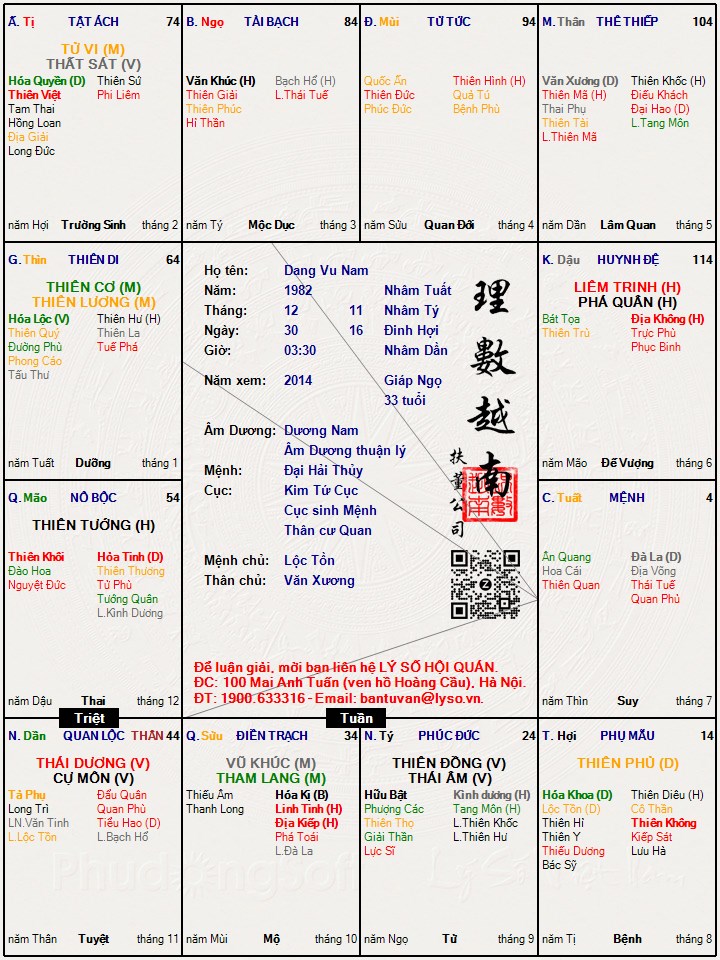 Ấ. Tị TẬT ÁCH 74
TỬ VI (M)
THẤT SÁT (V)
Hóa Quyền (D) Thiên Sứ
Thiên Việt Phi Liêm
Tam Thai
Hồng Loan
Địa Giải
Long Đức
năm Hợi Trường Sinh tháng 2
B. Ngọ TÀI BẠCH 84
Văn Khúc (H) Bạch Hổ (H)
Thiên Giải L.Thái Tuế
Thiên Phúc
Hỉ Thần
năm Tý Mộc Dục tháng 3
Đ. Mùi TỬ TỨC 94
Quốc Ấn Thiên Hình (H)
Thiên Đức Quả Tú
Phúc Đức Bệnh Phù
năm Sửu Quan Đới tháng 4
M. Thân THÊ THIẾP 104
Văn Xương (D) Thiên Khốc (H)
Thiên Mã (H) Điếu Khách
Thai Phụ Đại Hao (D)
Thiên Tài L.Tang Môn
L.Thiên Mã
năm Dần Lâm Quan tháng 5
G. Thìn THIÊN DI 64
THIÊN CƠ (M)
THIÊN LƯƠNG (M)
Hóa Lộc (V) Thiên Hư (H)
Thiên Quý Thiên La
Đường Phù Tuế Phá
Phong Cáo
Tấu Thư
năm Tuất Dưỡng tháng 1
Họ tên: Dang Vu Nam
Năm: 1982 Nhâm Tuất
Tháng: 12 11 Nhâm Tý
Ngày: 30 16 Đinh Hợi
Giờ: 03:30 Nhâm Dần
Năm xem: 2014 Giáp Ngọ
33 tuổi
Âm Dương: Dương Nam
Âm Dương thuận lý
Mệnh: Đại Hải Thủy
Cục: Kim Tứ Cục
Cục sinh Mệnh
Thân cư Quan
Mệnh chủ: Lộc Tồn
Thân chủ: Văn Xương
理數越南
扶董公司
Để luận giải, mời bạn liên hệ LÝ SỐ HỘI QUÁN.
ĐC: 100 Mai Anh Tuấn (ven hồ Hoàng Cầu), Hà Nội.
ĐT: 1900.633316 - Email: bantuvan@lyso.vn.
K. Dậu HUYNH ĐỆ 114
LIÊM TRINH (H)
PHÁ QUÂN (H)
Bát Tọa Địa Không (H)
Thiên Trù Trực Phù
Phục Binh
năm Mão Đế Vượng tháng 6
Q. Mão NÔ BỘC 54
THIÊN TƯỚNG (H)
Thiên Khôi Hỏa Tinh (D)
Đào Hoa Thiên Thương
Nguyệt Đức Tử Phù
Tướng Quân
L.Kình Dương
năm Dậu Thai tháng 12
C. Tuất MỆNH 4
Ân Quang Đà La (D)
Hoa Cái Địa Võng
Thiên Quan Thái Tuế
Quan Phủ
năm Thìn Suy tháng 7
Triệt
Tuần
N. Dần QUAN LỘC THÂN 44
THÁI DƯƠNG (V)
CỰ MÔN (V)
Tả Phụ Đẩu Quân
Long Trì Quan Phù
LN.Văn Tinh Tiểu Hao (D)
L.Lộc Tồn L.Bạch Hổ
năm Thân Tuyệt tháng 11
Q. Sửu ĐIỀN TRẠCH 34
VŨ KHÚC (M)
THAM LANG (M)
Thiếu Âm Hóa Kị (B)
Thanh Long Linh Tinh (H)
Địa Kiếp (H)
Phá Toái
L.Đà La
năm Mùi Mộ tháng 10
N. Tý PHÚC ĐỨC 24
THIÊN ĐỒNG (V)
THÁI ÂM (V)
Hữu Bật Kình dương (H)
Phượng Các Tang Môn (H)
Thiên Thọ L.Thiên Khốc
Giải Thần L.Thiên Hư
Lực Sĩ
năm Ngọ Tử tháng 9
T. Hợi PHỤ MẪU 14
THIÊN PHỦ (D)
Hóa Khoa (D) Thiên Diêu (H)
Lộc Tồn (D) Cô Thần
Thiên Hỉ Thiên Không
Thiên Y Kiếp Sát
Thiếu Dương Lưu Hà
Bác Sỹ
năm Tị Bệnh tháng 8